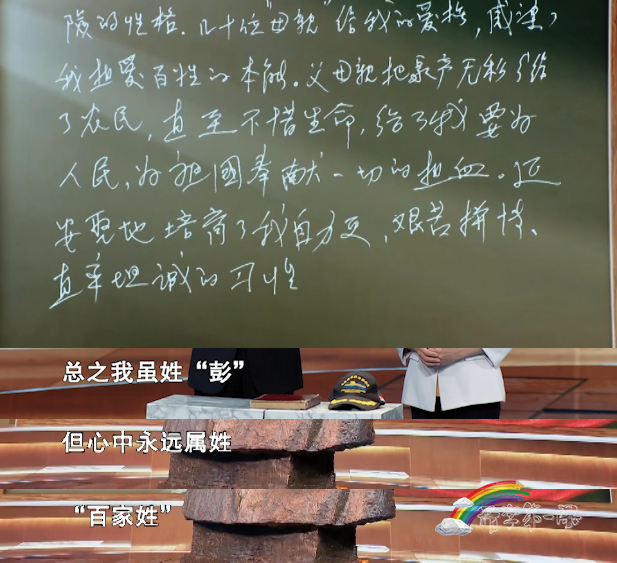 险的性格。几十位“母亲”给我的爱抚，感染了
我热爱百姓的本能。父母亲把家产无私分给
了农民，直至不惜生命，给了我要为
人民，为祖国奉献一切的热血。延
安圣地培育了我自力更，艰苦拼搏、
直率坦诚的习性
总之我虽姓“彭”
但心中永远属姓
“百家姓”
开学第一课